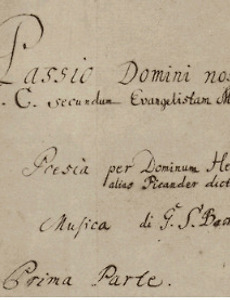 Passio Domini nos
. C. secundum Evangelistam M
Poesia per Dominum He
alias Picander dict
Musica di G. S. Bac
Prima Parte.